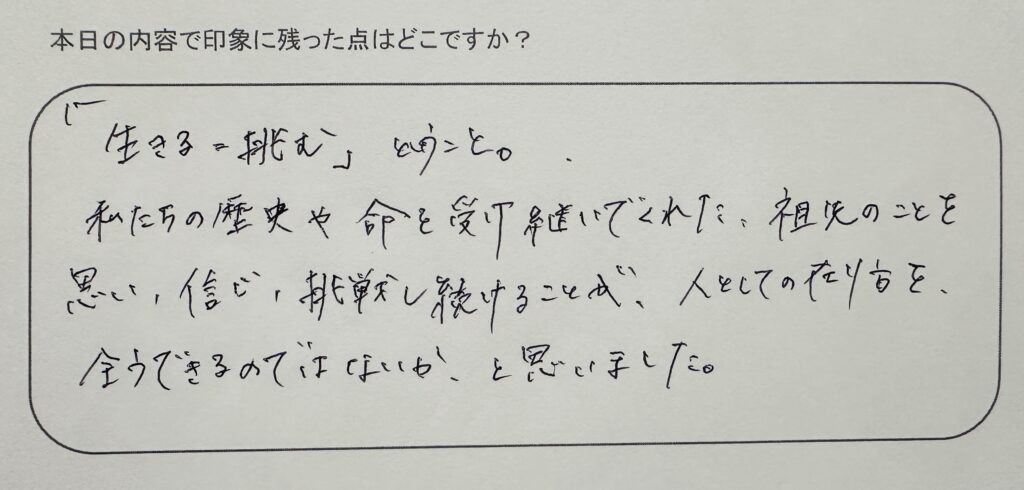 本日の内容で印象に残った点はどこですか？
「生きる=挑む」ということ。
私たちの歴史や命を受け継いでくれた、祖先のことを
思い、信じ、挑戦し続けることが、人としての在り方を、
全うできるのではないか、と思いました。